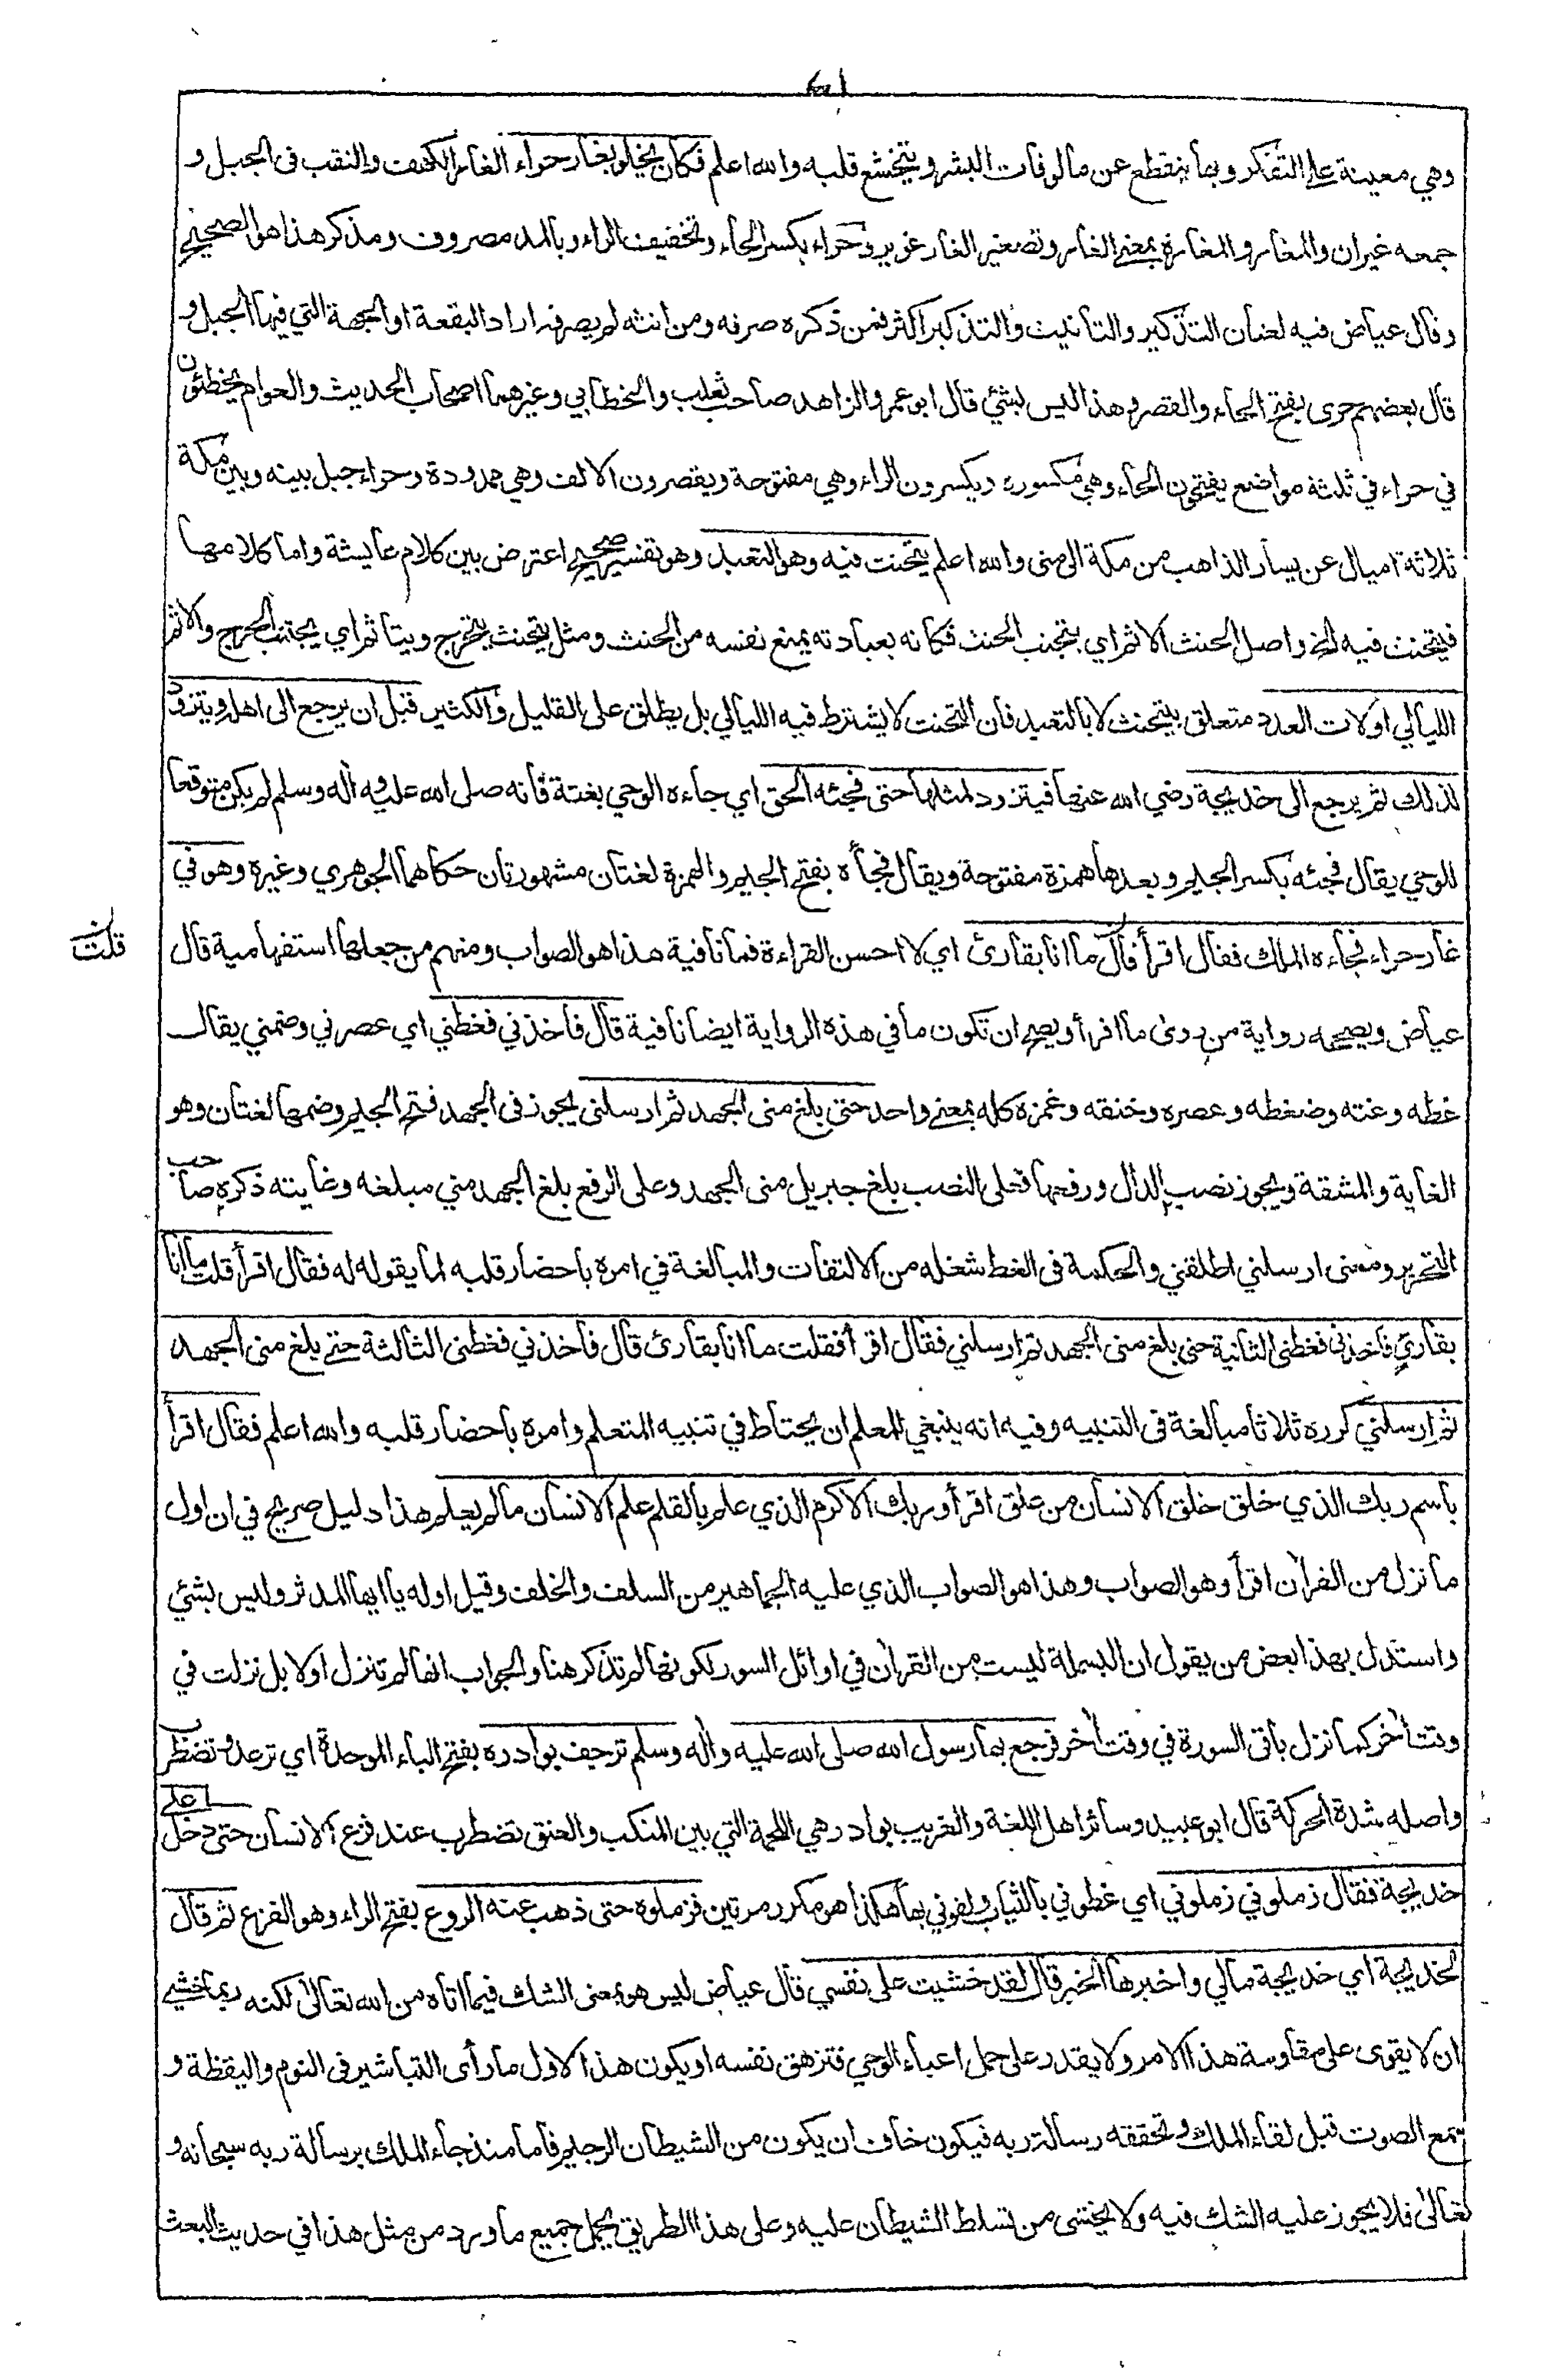 وهي معينة على التفكر وبها ينقطع عن مالوفات البشر ويتخشع قلبه والله اعلم فكان يخلو بغار حراء الغار الكهف والنقب فى الجبل و
جمعه غيران والمغار والمغارة بمعنى الغار وتصغير الغار غوير وحراء بكسر الحاء وتخفيف الراء وبالمد مصروف ومذكر هذا هو الصحيح
وقال عياض فيه لغتان التذكير والتانيث والتذكير اكثر فمن ذكره صرفه ومن انثه لم يصرفه اراد البقعة او الجهة التي فيها الجبل و
قال بعضهم حرى بفتح الحاء والقصر وهذا ليس بشئ قال ابو عمر والزاهد صاحب ثعلب والخطابي وغيرهما اصحاب الحديث والعوام يخطئون
في حراء في ثلثة مواضع يفتحون الحاء وهي مكسورة ويكسرون الراء وهي مفتوحة ويقصرون الالف وهي ممدودة وحراء جبل بينه وبين مكة
ثلاثة اميال عن يسار الذاهب من مكة الى منى والله اعلم يتحنث فيه وهو التعبد وهو تفسير صحيح اعترض بين كلام عايشة واما كلامها
فيتحنث فيه الخ واصل الحنث الاثم اي يتجنب الحنث فكانه بعبادته يمنع نفسه من الحنث ومثل يتحنث يتحرج ويتاثم اي يجتنب الحرج والاثم
الليالي اولات العدد متعلق بيتحنث لا بالتعبد فان التحنث لا يشترط فيه الليالي بل يطلق على القليل والكثير قبل ان يرجع الى اهله ويتزود
لذلك ثم يرجع الى خديجة رضي الله عنها فيتزود لمثلها حتى فجئه الحق اي جاءه الوحي بغتة فانه صلى الله عليه وآله وسلم لم يكن متوقعا
للوحي يقال فجئه بكسر الجيم وبعدها همزة مفتوحة ويقال فجأه بفتح الجيم والهمزة لغتان مشهورتان حكاهما الجوهري وغيره وهو في
غار حراء فجاءه الملك فقال اقرأ قال ما انا بقارئ اي لا احسن القراءة فما نافية هذا هو الصواب ومنهم من جعلها استفهامية قال
قلت
عياض ويصححه رواية من روى ما اقرأ ويصح ان تكون ما في هذه الرواية ايضا نافية قال فاخذني فغطني اي عصرني وضمني يقال
غطه وغته وضغطه وعصره وخنقه وغمزه كله بمعنى واحد حتى بلغ منى الجهد ثم ارسلنى يجوز فى الجهد فتح الجيم وضمها لغتان وهو
الغاية والمشقة ويجوز نصب الدال ورفعها فعلى النصب بلغ جبريل منى الجهد وعلى الرفع بلغ الجهد مني مبلغه وغايته ذكره صاحب
التحرير ومعنى ارسلني اطلقني والحكمة فى الغط شغله من الالتفات والمبالغة في امره باحضار قلبه لما يقوله له فقال اقرأ قلت ما انا
بقارئ فاخذنى فغطنى الثانية حتى بلغ منى الجهد ثم ارسلني فقال اقرأ فقلت ما انا بقارئ قال فاخذني فغطنى الثالثة حتى بلغ منى الجهد
ثم ارسلني كرره ثلاثا مبالغة فى التنبيه وفيه انه ينبغي للمعلم ان يحتاط في تنبيه المتعلم وامره باحضار قلبه والله اعلم فقال اقرأ
باسم ربك الذي خلق خلق الانسان من علق اقرأ وربك الاكرم الذي علم بالقلم علم الانسان ما لم يعلم هذا دليل صريح في ان اول
ما نزل من القرآن اقرأ وهو الصواب وهذا هو الصواب الذي عليه الجماهير من السلف والخلف وقيل اوله يا ايها المدثر وليس بشئي
واستدل بهذا بعض من يقول ان البسملة ليست من القرآن في اوائل السور لكونها لم تذكر هنا والجواب انها لم تنزل اولا بل نزلت في
وقت آخر كما نزل باقى السورة في وقت آخر فرجع بها رسول الله صلى الله عليه وآله وسلم ترجف بوادره بفتح الباء الموحدة اي ترعد وتضطرب
واصله شدة الحركة قال ابو عبيد وسائر اهل اللغة والغريب بوادر هي اللحمة التي بين المنكب والعنق تضطرب عند فزع الانسان حتى دخل على
خديجة فقال زملوني زملوني اي غطوني بالثياب ولفوني بها هكذا هو مكرر مرتين فزملوه حتى ذهب عنه الروع بفتح الراء وهو الفزع ثم قال
لخديجة اي خديجة مالي واخبرها الخبر قال لقد خشيت على نفسي قال عياض ليس هو بمعنى الشك فيما اتاه من الله تعالى لكنه ربما خشي
ان لا يقوى على مقاومة هذا الامر ولا يقدر على حمل اعباء الوحي فتزهق نفسه او يكون هذا الاول ما رأى التباشير فى النوم واليقظة و
سمع الصوت قبل لقاء الملك وتحققه رسالة ربه فيكون خاف ان يكون من الشيطان الرجيم فاما منذ جاء الملك برسالة ربه سبحانه و
تعالى فلا يجوز عليه الشك فيه ولا يخشى من تسلط الشيطان عليه وعلى هذا الطريق يحمل جميع ما ورد من مثل هذا في حديث البعث